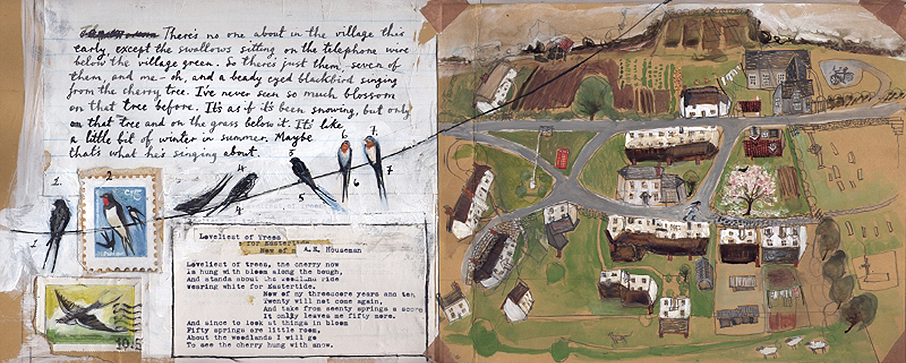 There's no one about in the village this
early, except the swallows sitting on the telephone wire
below the village green. So there's just them, seven of
them, and me – oh, and a beady eyed blackbird singing
from the cherry tree. I've never seen so much blossom
on that tree before. It's as if it's been snowing, but only
on that tree and on the grass below it. It's like
a little bit of winter in summer. Maybe
that's what he's singing about.
1.
2
3
4
5
6
7.
1
4
5
6
7
Loveliest of Trees
s for Eastertide
Now of m A.E. Houseman
Loveliest of trees, the cherry now
Is hung with bloom along the bough,
and stands about the woodland ride
wearing white for Eastertide.
Now of my threescore years and ten
Twenty will not come again,
And take from seenty springs a score
It only leaves me fifty more.
And since to look at things in bloom
Fifty springs are little room,
About the woodlands I will go
To see the cherry hung with snow.
10.5